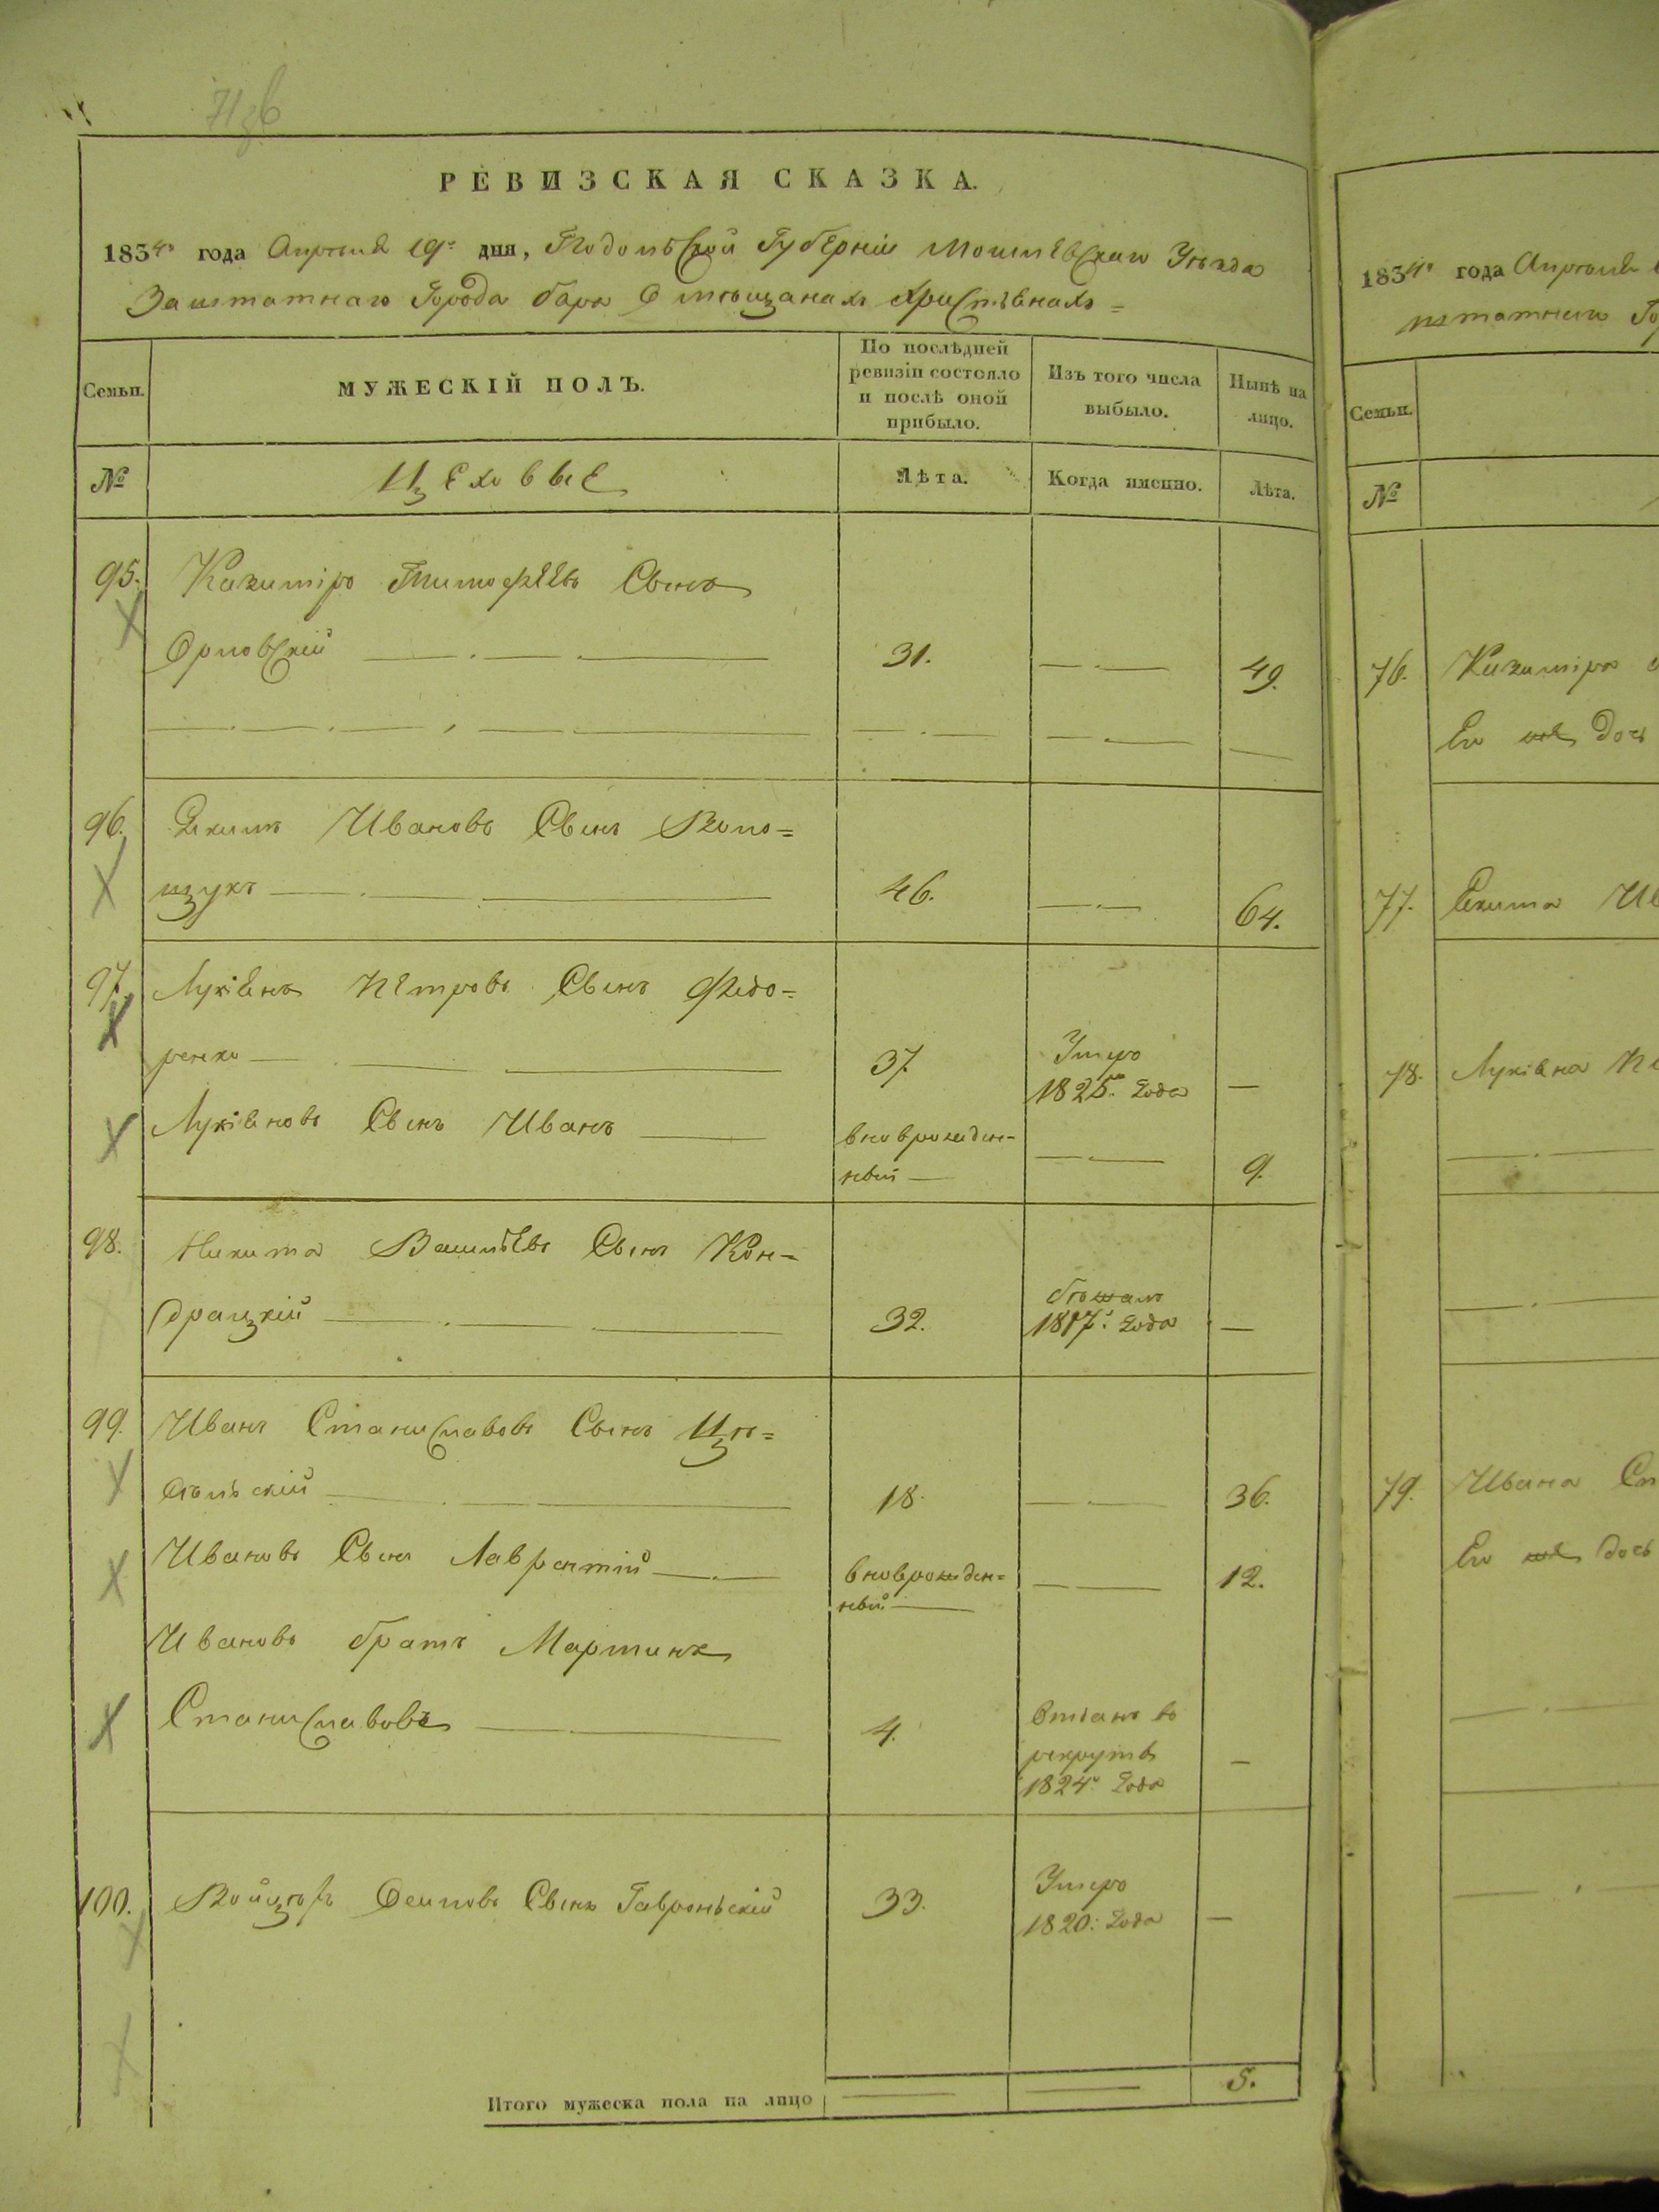 РЕВИЗСКАЯ СКАЗКА.
1834го года Апреля 19го дня, Подольской Губерніи Могилевскаго Уѣзда
Заштатнаго Города Бара О мѣщанахъ Христіанахъ =
Семьи.
МУЖЕСКІЙ ПОЛЪ.
По послѣдней
ревизіи состояло
и послѣ оной
прибыло.
Изъ того числа
выбыло.
Нынѣ на
лицо.
№
Цеховые
Лѣта.
Когда именно.
Лѣта.
95. Казиміръ Тимофѣевъ Сынъ
Орловскій 31. 49.
96. Екимъ Ивановъ Сынъ
46. 64.
97. Лукіанъ Петровъ Сынъ Федо=
ренко 37. Умеръ
1825го года
Лукіановъ Сынъ Иванъ вноврожден=
ный 9.
98. Никита Васильевъ Сынъ Кон=
драцкій 32. бѣжалъ
1817го года
99. Иванъ Станиславовъ Сынъ
18. 36.
Ивановъ Сынъ Лаврентій вноврожден=
ный 12.
Ивановъ братъ Мартинъ
Станиславовъ 4. Отданъ въ
рекруты
1824го года
100. Войцехъ Осиповъ Сынъ Гавроньскій 33. Умеръ
1820: года
Итого мужеска пола на лицо 5.
1834го года Апреля
штатнаго
Семьи.
№
76. Казиміра
Его
77. Екима
78. Лукіана
79. Ивана
Его